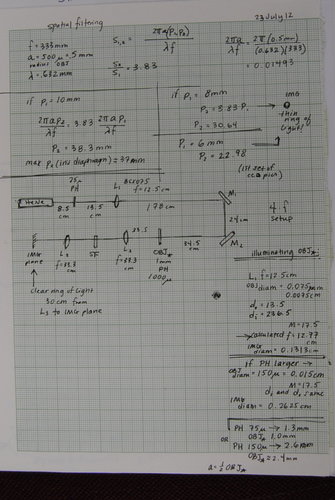 spatial filtering
23 July 12
f = 333mm
a = 500μ = .5mm
radius OBJ
λ = .632 mm
S₁,₂ = 2πa(P₁,P₂) / λf
S₂/S₁ = 3.83
2πa/λf = 2π(0.5mm) / (0.632)(333)
= 0.01493
if P₁ = 10mm
2πaP₂/λf = 3.83 2πaP₁/λf
P₂ = 38.3mm
max P₂ (iris diaphragm) = 37mm
if P₁ = 8mm
P₂ = 3.83 P₁
P₂ = 30.64
P₁ = 6mm
P₂ = 22.98
(1st set of ccd pics)
IMG
thin ring of light!
HeNe
75μ PH
L₁ BSX075
f = 12.5cm
8.5 cm
13.5 cm
178 cm
M₁
24cm
M₂
4f setup
IMG plane
L₃
f = 33.3 cm
SF
33.3
L₂
f = 33.3 cm
OBJ
1mm PH
1000μ
34.5 cm
clear ring of light
30cm from
L₃ to IMG plane
illuminating OBJ
L₁ f = 12.5cm
OBJ diam = 0.075mm
0.0075cm
d₀ = 13.5
dᵢ = 236.5
M = 17.5
calculated f = 12.77 cm
IMG diam = 0.1313cm
if PH larger →
OBJ diam = 150μ = 0.015cm
M = 17.5
d₀ and dᵢ same
IMG diam = 0.2625cm
PH 75μ → 1.3mm
OBJ 1.0mm
OR
PH 150μ → 2.6mm
OBJ = 2.4mm
a = ½ OBJ